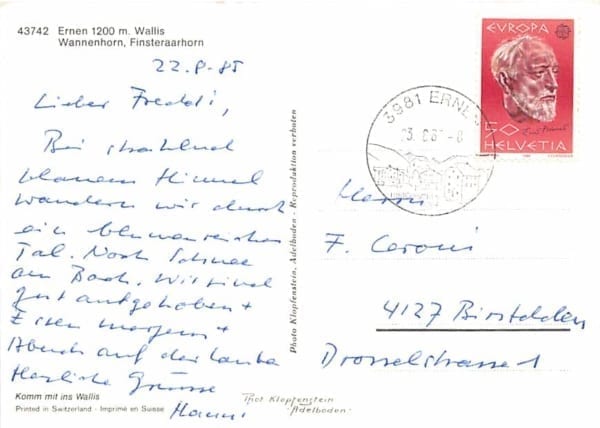 43742 Ernen 1200 m. Wallis
Wannenhorn, Finsteraarhorn
22.8.85
Lieber Freddi,
Bei strahlend
blauem Himmel
wandern wir durch
ein blumenreiches
Tal. Noch Schnee
am Bach. Wir sind
gut aufgehoben +
Essen morgens +
Abends auf der Laube
Herzliche Grüsse
Hanni
Komm mit ins Wallis
Printed in Switzerland - Imprimé en Suisse
Photo Klopfenstein, Adelboden - Reproduktion verboten
Phot Klopfenstein
-Adelboden-
3981 ERNEN
EUROPA
50
HELVETIA
Herrn
F. Ceroni
4127 Birsfelden
Drosselstrasse 1